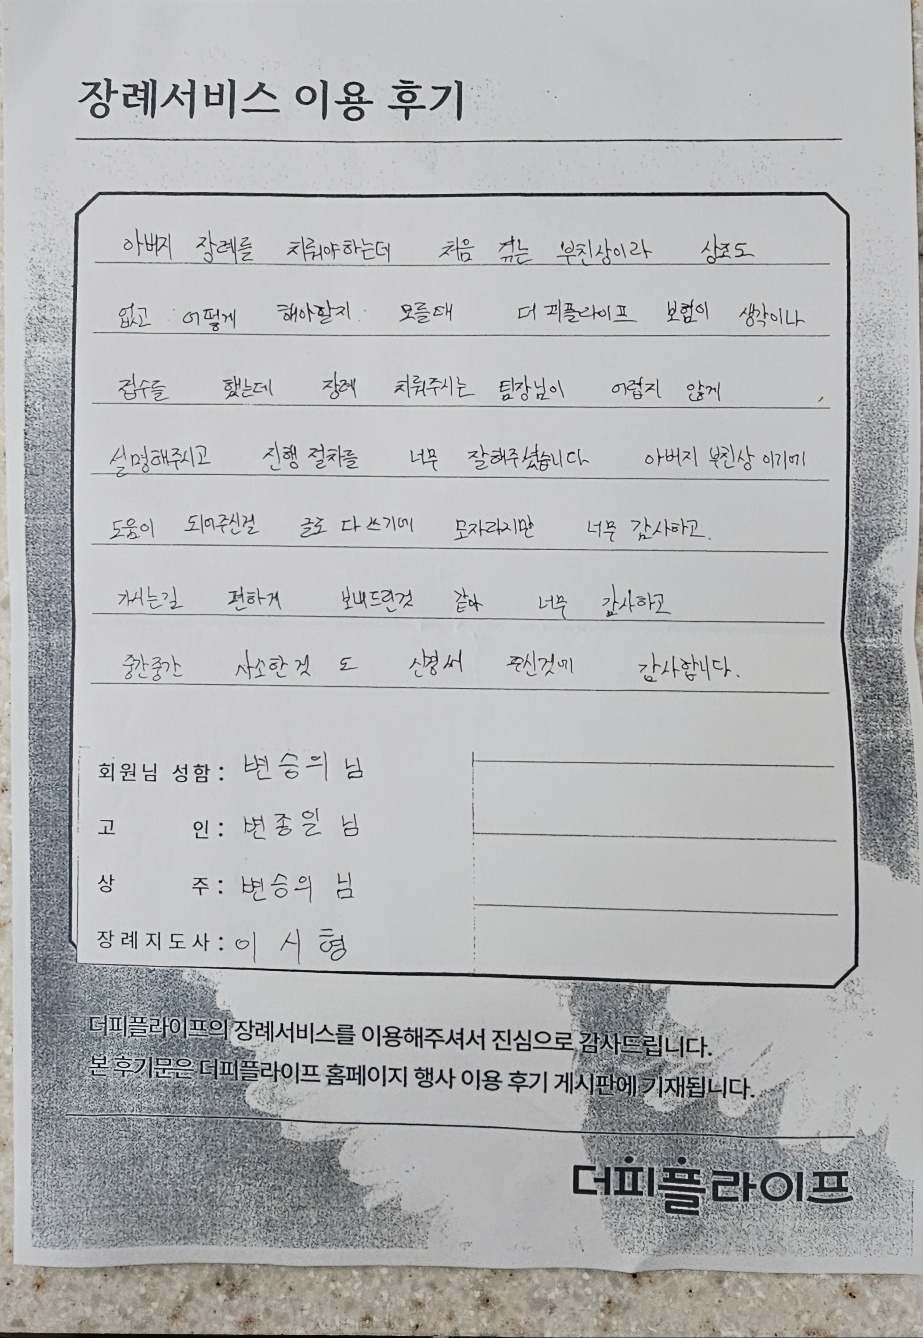 장례서비스 이용 후기
아버지 장례를 치뤄야하는데 처음 겪는 부친상이라 상조도
없고 어떻게 해야할지 모를때 더 피플라이프 보험이 생각이나
접수를 했는데 장례 치뤄주시는 팀장님이 어렵지 않게
설명해주시고 진행 절차를 너무 잘해주셨습니다 아버지 부친상 이기에
도움이 되어주신걸 글로 다 쓰기에 모자라지만 너무 감사하고.
가시는길 편하게 보내드린것 같아 너무 감사하고
중간중간 사소한 것 도 신경써 주신것에 감사합니다.
회원님 성함 : 변승의 님
고 인 : 변종일 님
상 주 : 변승의 님
장례지도사 : 이 시 형
더피플라이프의 장례서비스를 이용해주셔서 진심으로 감사드립니다.
본 후기문은 더피플라이프 홈페이지 행사 이용 후기 게시판에 기재됩니다.
더피플라이프